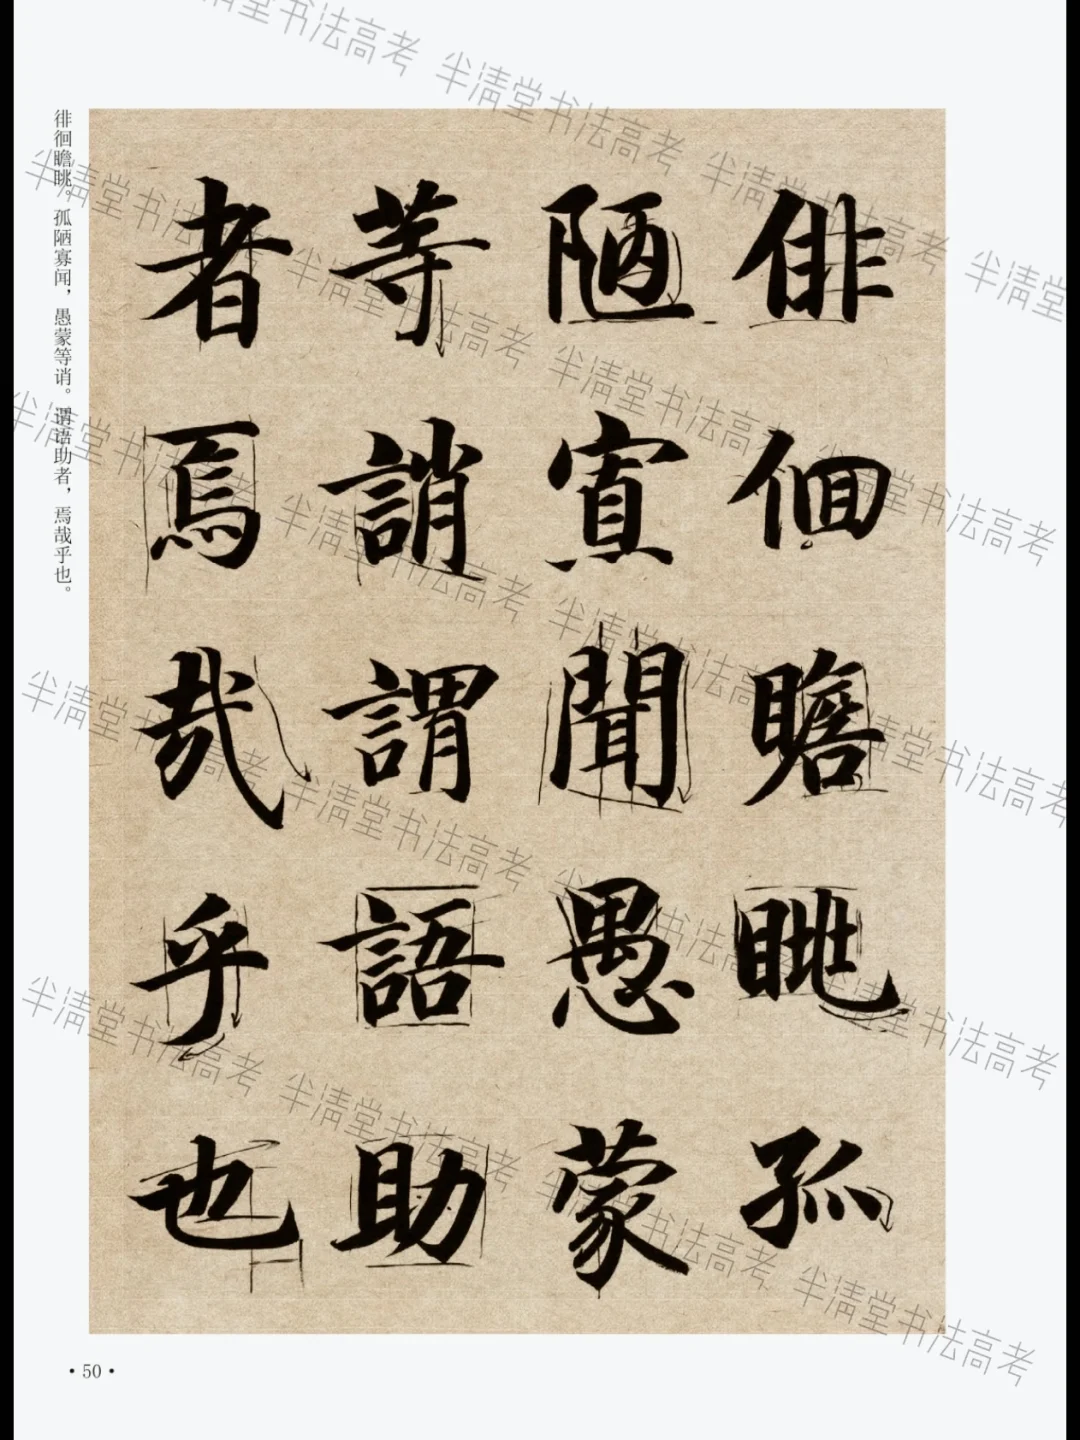 俳佪瞻眺孤
陋寡聞愚蒙
等誚謂語助
者焉哉乎也
徘徊瞻眺。孤陋寡闻，愚蒙等诮。谓语助者，焉哉乎也。
·50·
半清堂书法高考